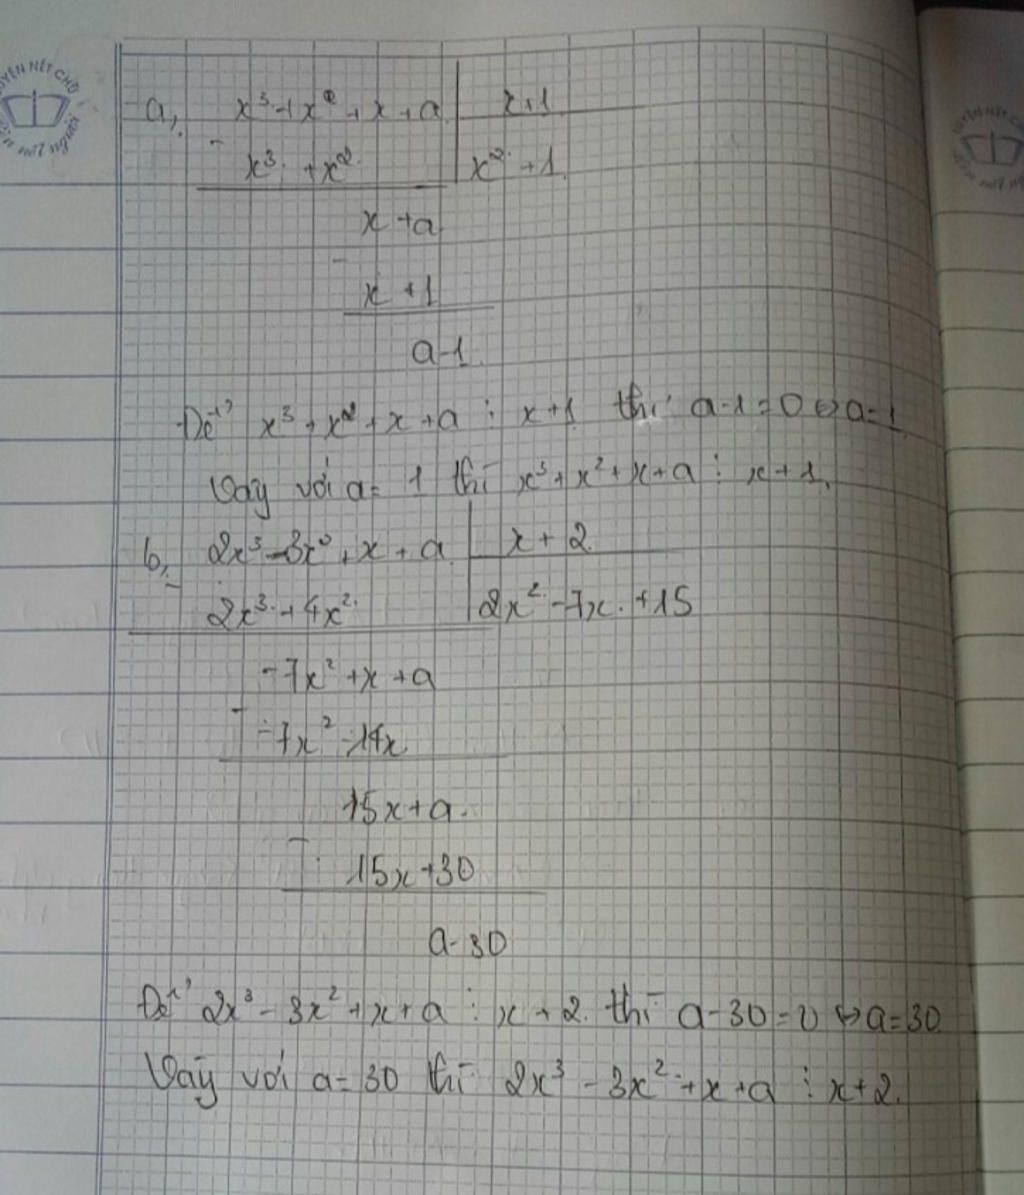 LUYỆN NÉT CHỮ
a, x³ + x² + x + a | x+1
- x³ + x² | x² + 1
x + a
-
x + 1
a-1
Để x³ + x² + x + a ⋮ x+1 thì a-1 = 0 ⇔ a=1
Vậy với a= 1 thì x³ + x² + x + a ⋮ x+1.
b, 2x³ - 3x² + x + a | x + 2
- 2x³ + 4x² | 2x² - 7x + 15
-7x² + x + a
-
-7x² - 14x
15x + a
-
15x + 30
a-30
Để 2x³ - 3x² + x + a ⋮ x + 2 thì a-30 = 0 ⇔ a=30
Vậy với a= 30 thì 2x³ - 3x² + x + a ⋮ x+2.